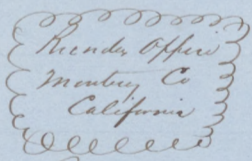 Recorder Office
Monterey Co
California